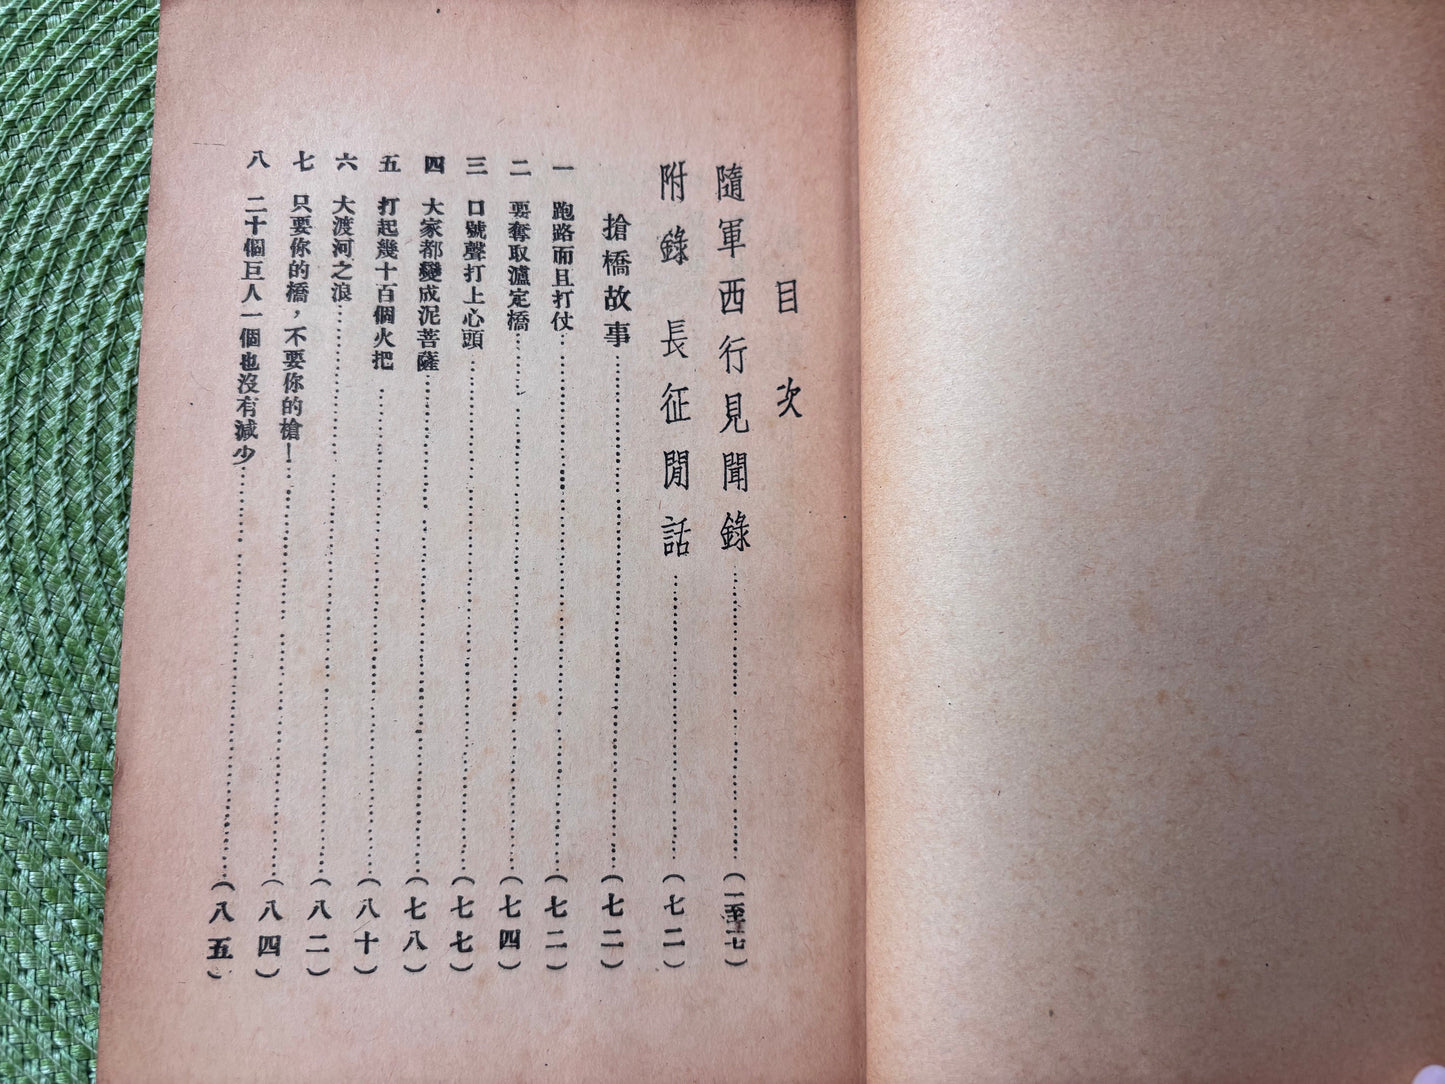 目次
隨軍西行見聞錄……(一至七一)
附錄 長征閒話……(七二)
搶橋故事……(七二)
一 跑路而且打仗……(七二)
二 要奪取瀘定橋……(七四)
三 口號聲打上心頭……(七七)
四 大家都變成泥菩薩……(七八)
五 打起幾十百個火把……(八十)
六 大渡河之浪……(八二)
七 只要你的橋，不要你的槍！……(八四)
八 二十個巨人一個也沒有減少……(八五)